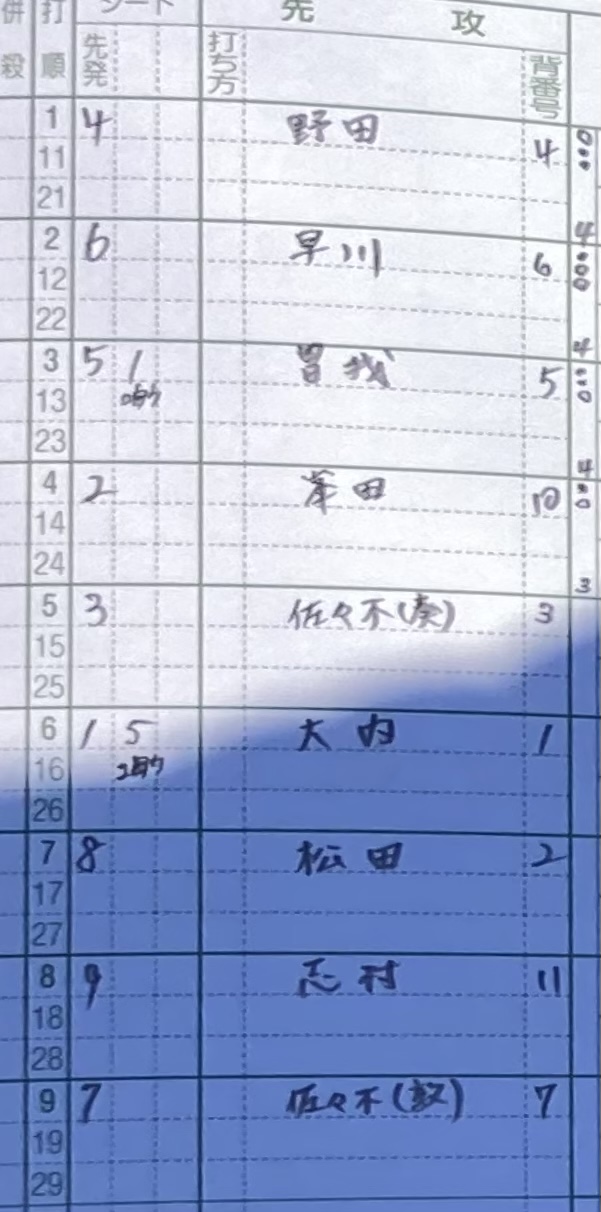 併殺 打順 シート 先攻
先発 打ち方 背番号
1 4 野田 4
11
21
2 6 早川 6
12
22
3 5 1 曽我 5
13
23
4 2 峯田 10
14
24
5 3 佐々木(奏) 3
15
25
6 1 5 大内 1
16
26
7 8 松田 2
17
27
8 9 志村 11
18
28
9 7 佐々木(敦) 7
19
29